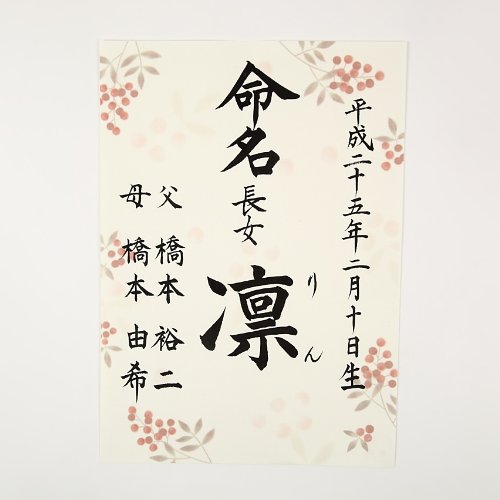 平成二十五年二月十日生
命名
長女
凛
りん
父 橋本 裕二
母 橋本 由希